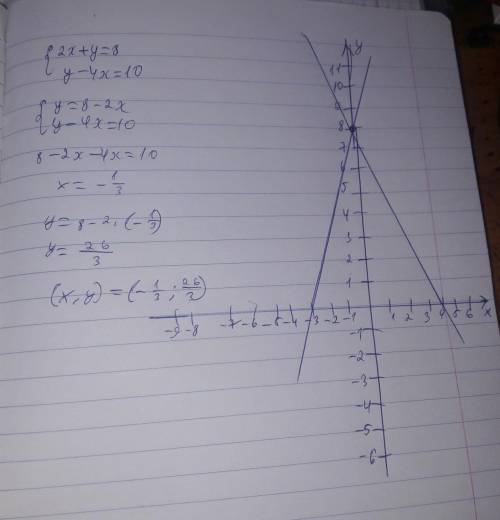 {2x+y=8
y-4x=10
{y=8-2x
y-4x=10
8-2x-4x=10
x=-1/3
y=8-2·(-1/3)
y=26/3
(x,y)=(-1/3;26/3)
y
11
10
9
8
7
6
5
4
3
2
1
-9 -8 -7 -6 -5 -4 -3 -2 -1 1 2 3 4 5 6 x
-1
-2
-3
-4
-5
-6